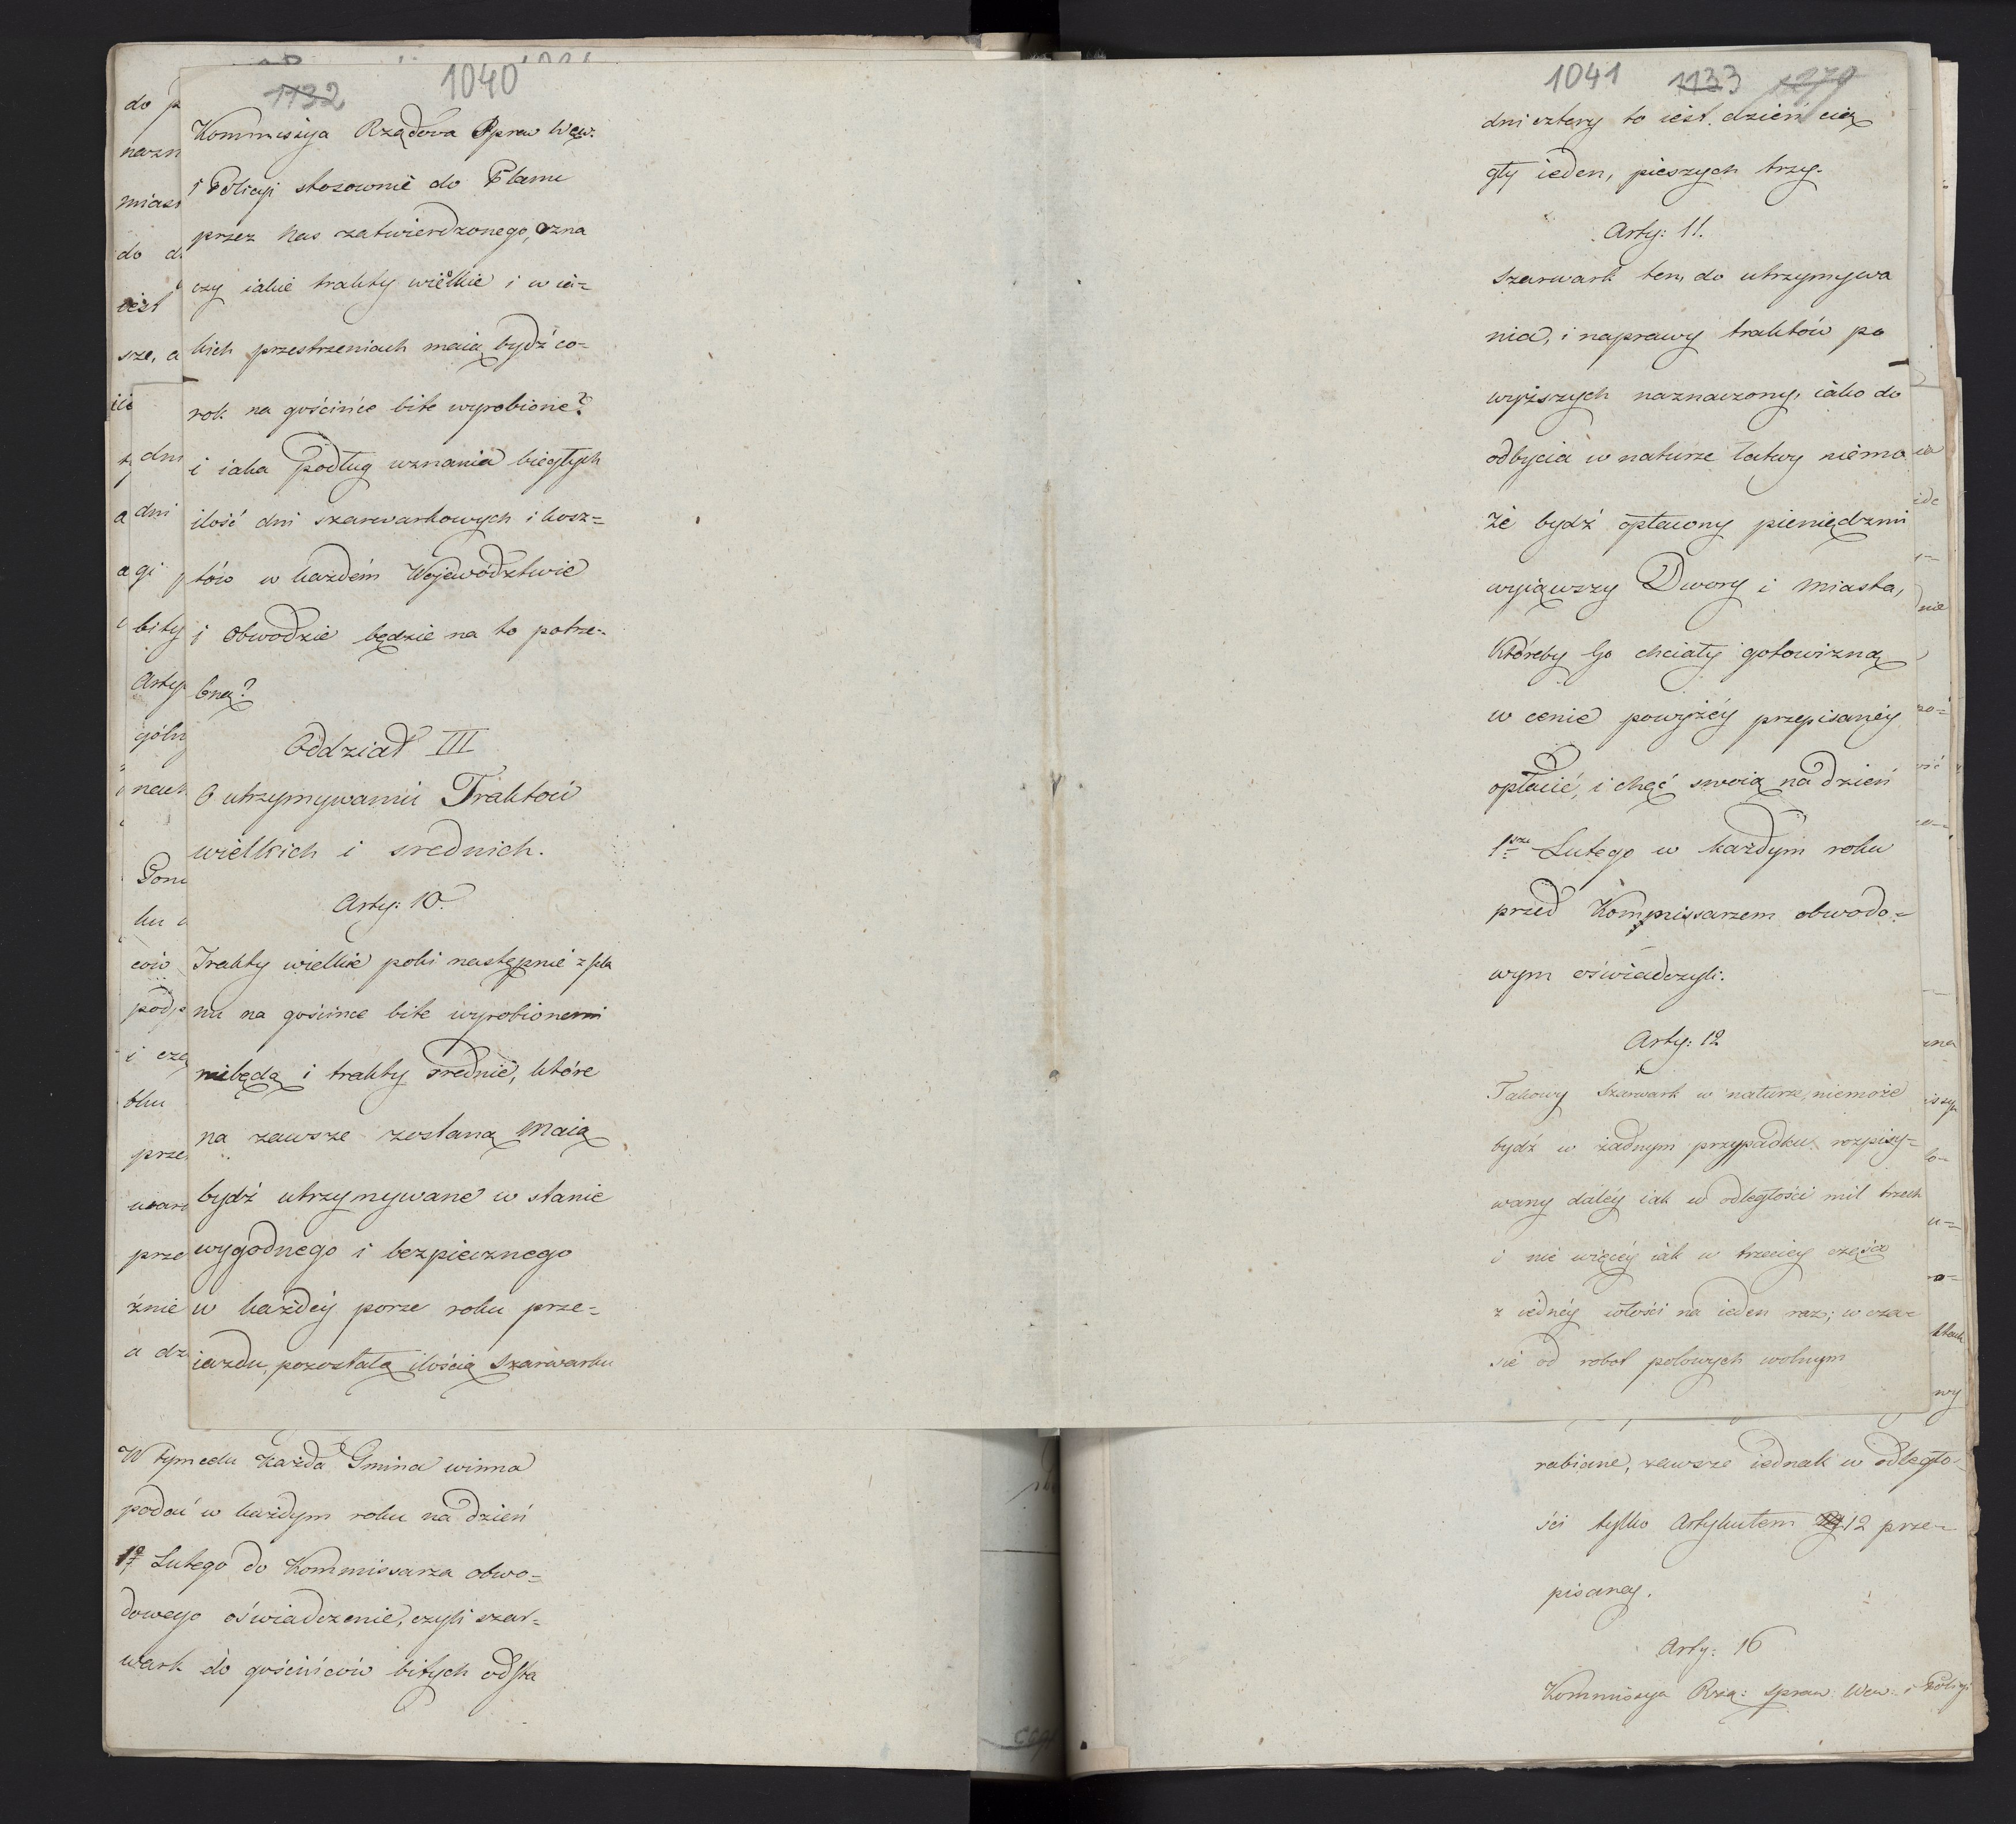 1132 1040
Kommissyia Rządowa Spraw Wew.
i Policyi stosownie do Planu
przez Nas zatwierdzonego, ozna
czy iakie trakty wielkie i w ia=
kich przestrzeniach maią bydź co=
rok na gościńce bite wyrobione?
i iaka podług uznania biegłych
ilość dni szarwarkowych i kosz=
tów w każdém Województwie
i Obwodzie będzie na to potrze=
bną?
Oddział III
O utrzymywaniu Traktów
wielkich i srednich.
Arty: 10.
Trakty wielkie poki następnie z pla
nu na gościńce bite wyrobionemi
niebędą i trakty srednie, które
na zawsze zostaną maią
bydź utrzymywane w stanie
wygodnego i bezpiecznego
w każdéy porze roku prze=
iazdu, pozostałą ilością szarwarku
W tym celu każda Gmina winna
podać w każdym roku na dzień
Lutego do Kommissarza obwo=
dowego oświadczenie, czyli szar=
wark do gościńców bitych odsta
1041 1133 1270
dni cztery to iest. dzień cią
gły ieden, pieszych trzy.
Arty: 11.
Szarwark ten, do utrzymywa
nia, i naprawy traktów po
wyższych naznaczony, iako do
odbycia w naturze łatwy niemo
że bydź opłacony pieniędzmi
wyiąwszy Dwory i Miasta,
Któreby Go chciały gotowizną
w cenie powyżéy przepisanéy
opłacić, i chęć swoią na dzień
1sze Lutego w każdym roku
przed Kommissarzem obwodo=
wym oświadczyli.
Arty: 12
Takowy Szarwark w naturze, niemoże
bydź w żadnym przypadku rozpisy=
wany daléy iak w odległości mil trzech
i nie więcéy iak w trzeciey części
z iednéy włości na ieden raz; w cza=
sie od robot polowych wolnym
rabiane, zawsze iednak w odległo=
ści tylko Artykułem 12 prze=
pisaney.
Arty: 16
Kommissya Rzą: Spraw Wew: i Policyi